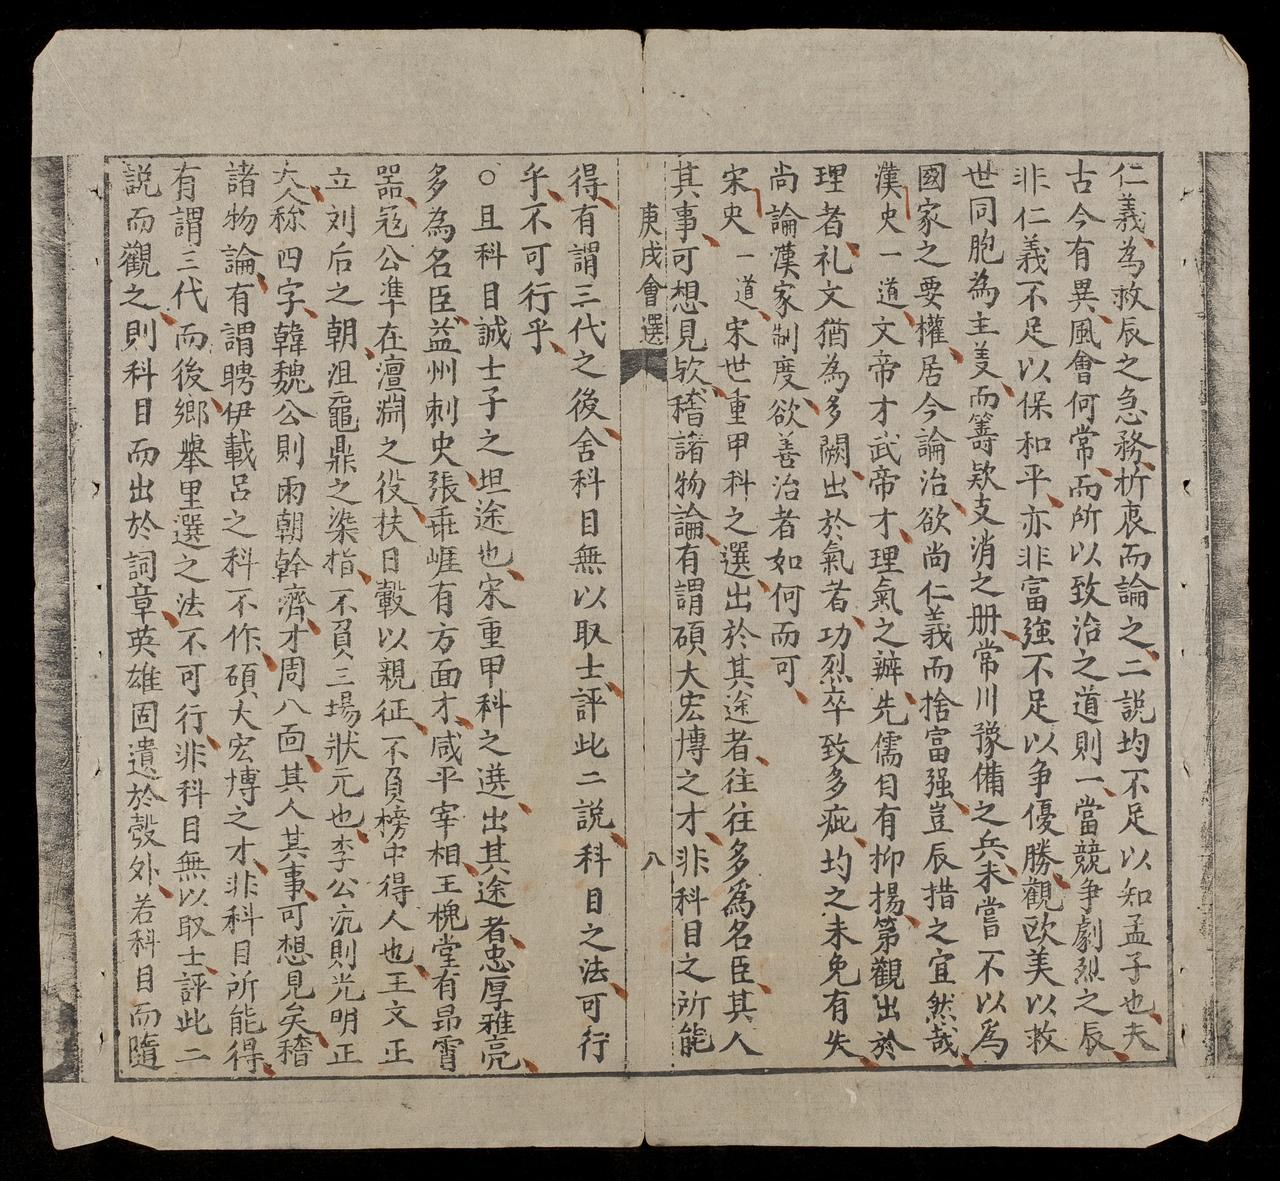 仁義為救辰之急務析衷而論之二説均不足以知孟子也夫
古今有異風會何常而所以致治之道則一當競争劇烈之辰
非仁義不足以保和平亦非富強不足以争優勝觀欧美以救
世同胞為主㫖而籌欵支消之册常川豫備之兵未嘗不以為
國家之要權居今論治欲尚仁義而捨富强豈辰措之宜然哉
漢史一道文帝才武帝才理氣之辨先儒自有抑揚第觀出於
理者礼文猶為多闕出於氣者功烈卒致多疵均之未免有失
尚論漢家制度欲善治者如何而可
宋史一道宋世重甲科之選出於其途者往往多為名臣其人
其事可想見欤稽諸物論有謂碩大宏博之才非科目之所能
庚戌會選 八
得有謂三代之後舍科目無以取士評此二説科目之法可行
乎不可行乎
○且科目誠士子之坦途也宋重甲科之選出其途者忠厚雅亮
多為名臣益州刺史張乖崖有方面才咸平宰相王槐堂有昂霄
器冦公準在澶淵之役扶日轂以親征不負榜中得人也王文正
立刘后之朝沮黿鼎之染指不負三場狀元也李公沆則光明正
大人称四字韓魏公則兩朝幹濟才周八面其人其事可想見矣稽
諸物論有謂聘伊載呂之科不作碩大宏博之才非科目所能得
有謂三代而後鄉舉里選之法不可行非科目無以取士評此二
説而觀之則科目而出於詞章英雄固遺於彀外若科目而隨